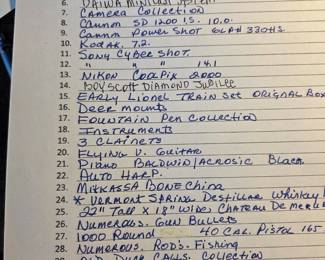 6. DAIWA MINICAST SYSTEM
7. CAMERA COLLECTION
8. CANNON SD 1200 IS. 10.0.
9. CANNON POWER SHOT ELPH 330HS
10. KODAK. 7.2.
11. SONY CYBER SHOT.
12. " " " 14.1
13. NIKON COOLPIX 2000
14. BOYSCOTT DIAMOND JUBILEE
15. EARLY LIONEL TRAIN SET ORIGNAL BOX
16. DEER MOUNTS
17. FOUNTAIN PEN COLLECTION
18. INSTRUMENTS
19. 3 CLAINETS
20. FLYING V. GUITAR
21. PIANO BALDWIN/ACROSIC BLACK
22. AUTO HARP.
23. MIKKASSA BONE CHINA
24. * VURMONT SPRING DESTILLAR WHISKEY
25. 22" TALL X 18" WIDE, CHATEAU DE
26. NUMEROUS. GUN BULLETS
27. 1000 ROUND 40 CAL. PISTOL 165
28. NUMEROUS. RODS. FISHING
OLD DUCK CALLS. COLLECTION